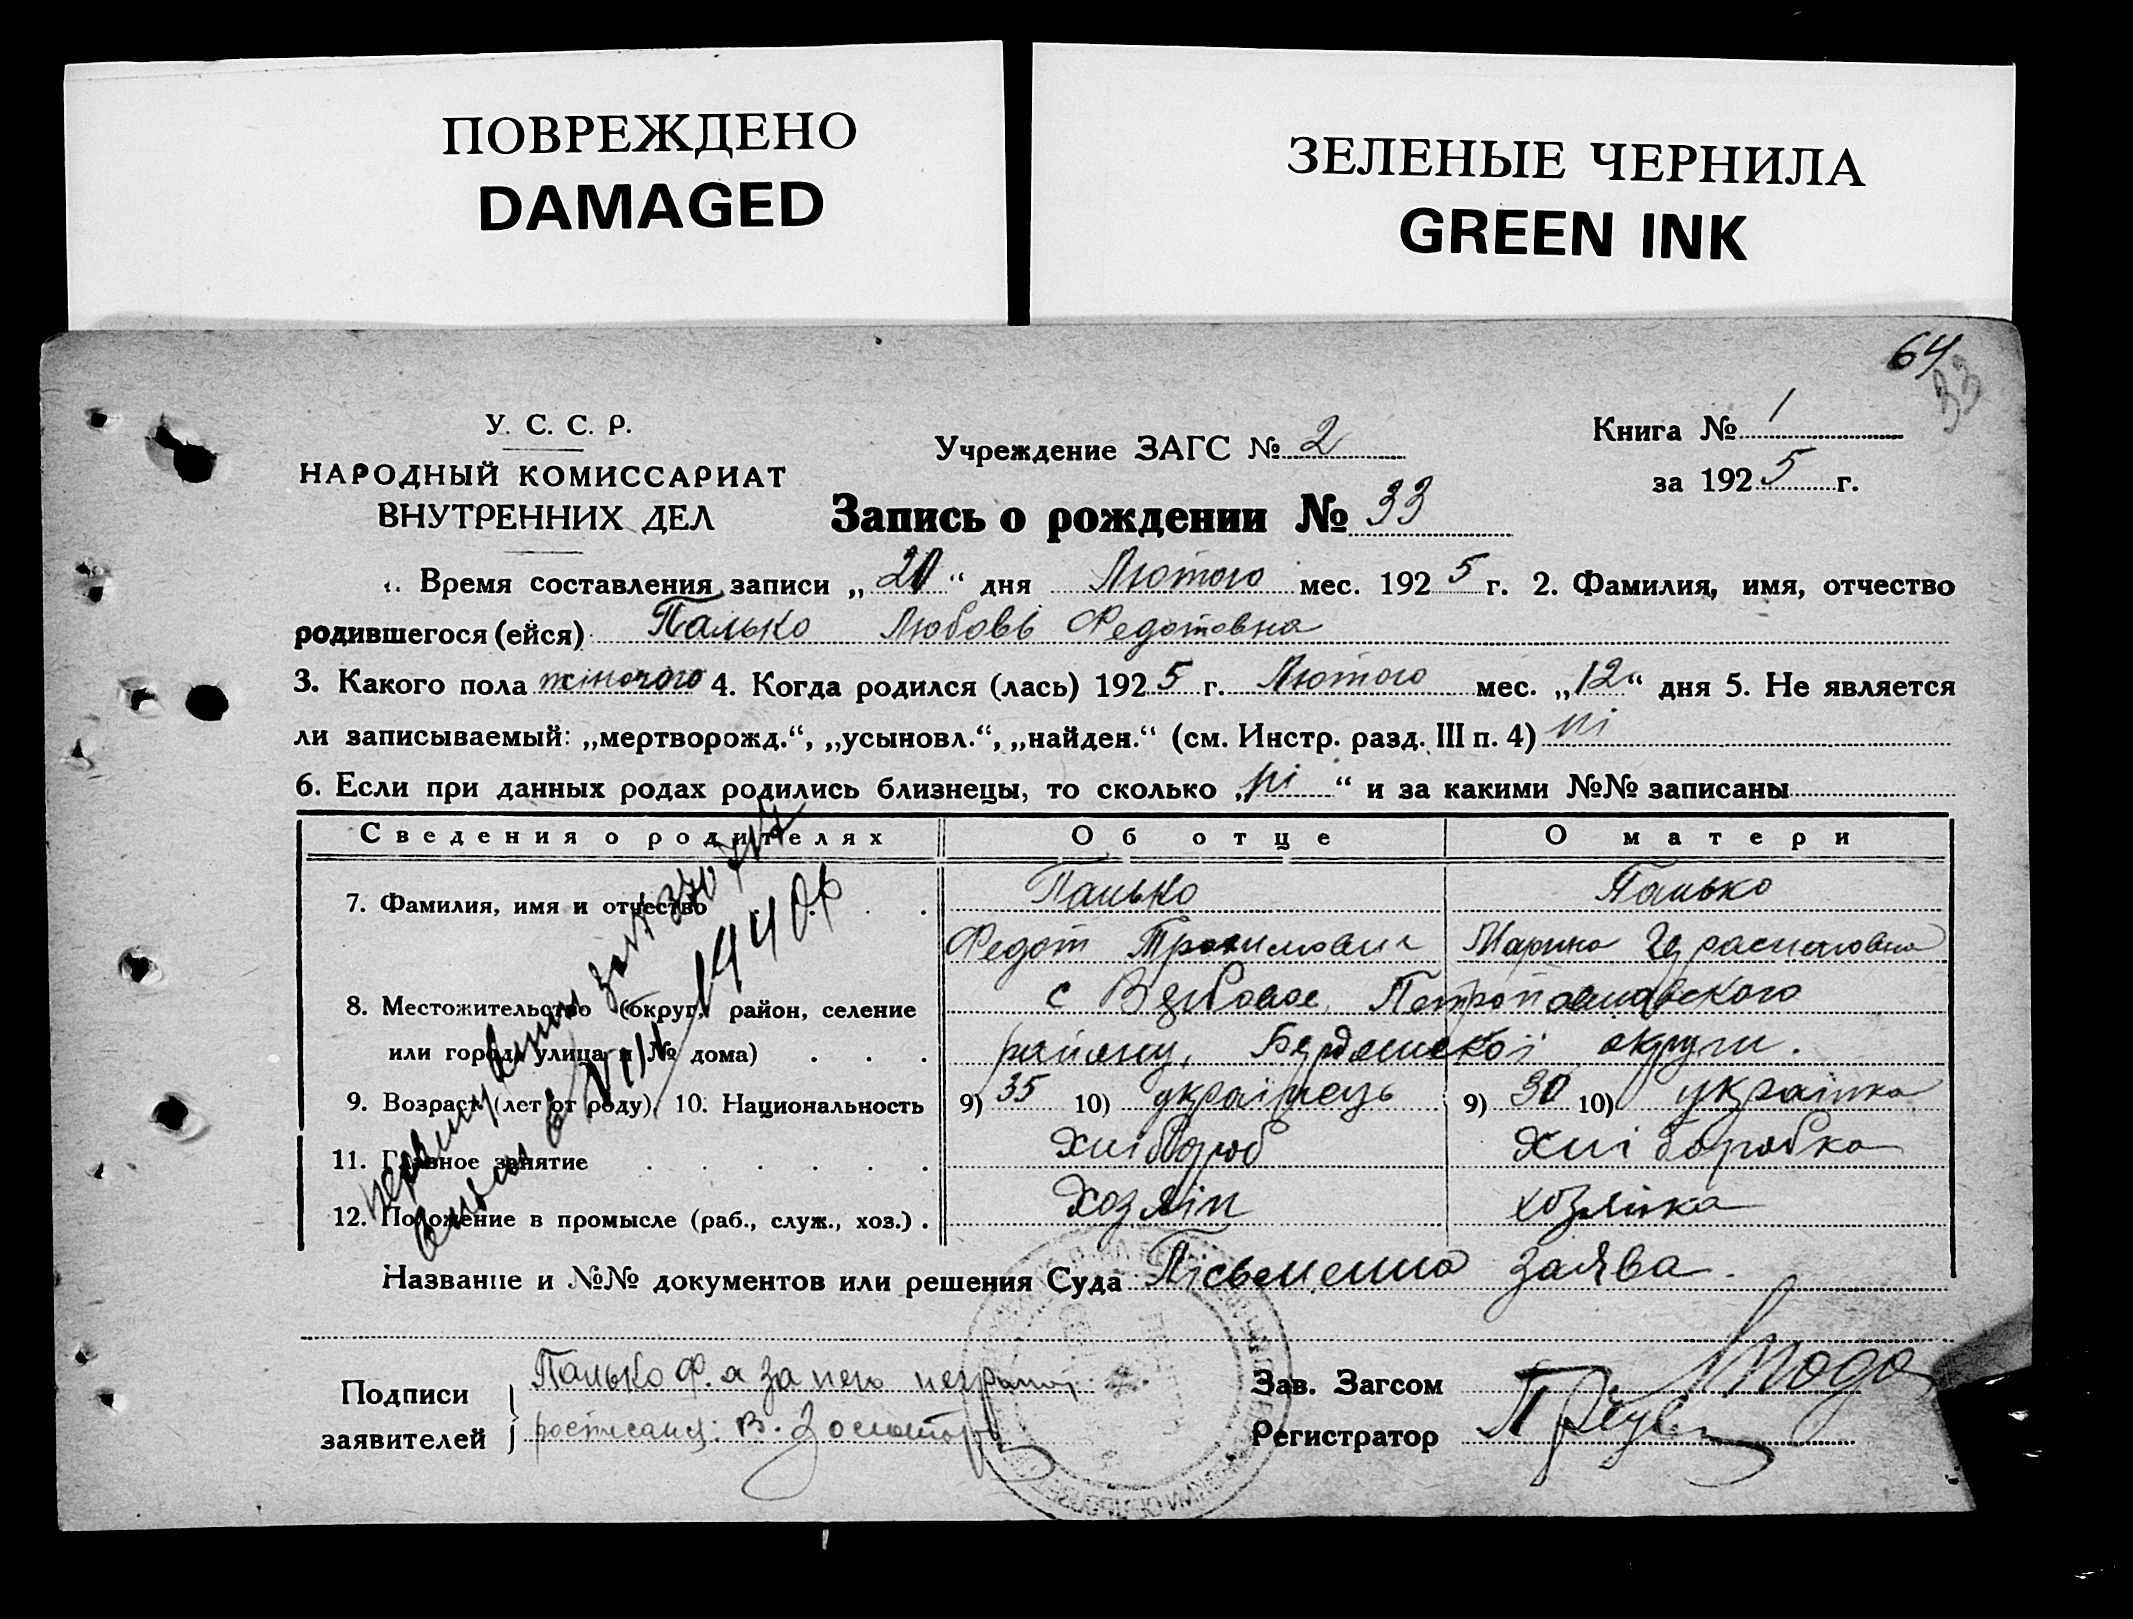 ПОВРЕЖДЕНО
DAMAGED
ЗЕЛЕНЫЕ ЧЕРНИЛА
GREEN INK
64
33
У. С. С. Р.
НАРОДНЫЙ КОМИССАРИАТ
ВНУТРЕННИХ ДЕЛ
Учреждение ЗАГС № 2
Книга № 1
за 1925 г.
Запись о рождении № 33
Время составления записи „20“ дня Лютого мес. 1925 г. 2. Фамилия, имя, отчество
родившегося (ейся) Палько Любовь Федотовна
3. Какого пола жіночого 4. Когда родился (лась) 1925 г. Лютого мес. „12“ дня 5. Не является
ли записываемый: „мертворожд.“, „усыновл.“, „найден.“ (см. Инстр. разд. III п. 4) ні
6. Если при данных родах родились близнецы, то сколько „ні“ и за какими №№ записаны
Сведения о родителях Об отце О матери
7. Фамилия, имя и отчество Палько Палько
Федот Трохимович Марина Герасимовна
8. Местожительство (округ, район, селение с Петропавловского
или город, улица и № дома) району, Бердянської округи.
9. Возраст (лет от роду) 10. Национальность 9) 35 10) українець 9) 30 10) українка
11. Главное занятие Хлібороб Хліборобка
12. Положение в промысле (раб., служ., хоз.) Хозяін хозяйка
Название и №№ документов или решения Суда Пісьменна заява.
Подписи Палько Ф. а за него неграмот
заявителей росписался: В.
Зав. Загсом
Регистратор